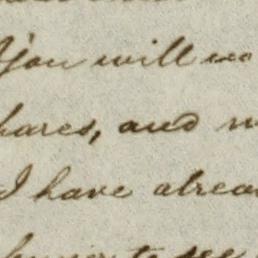 You will
hares, and
I have alrea
to see